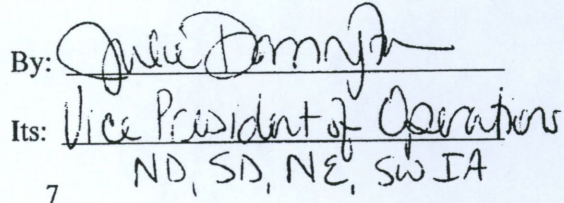 By: Julie
Its: Vice President of Operations
ND, SD, NE, SW IA
7